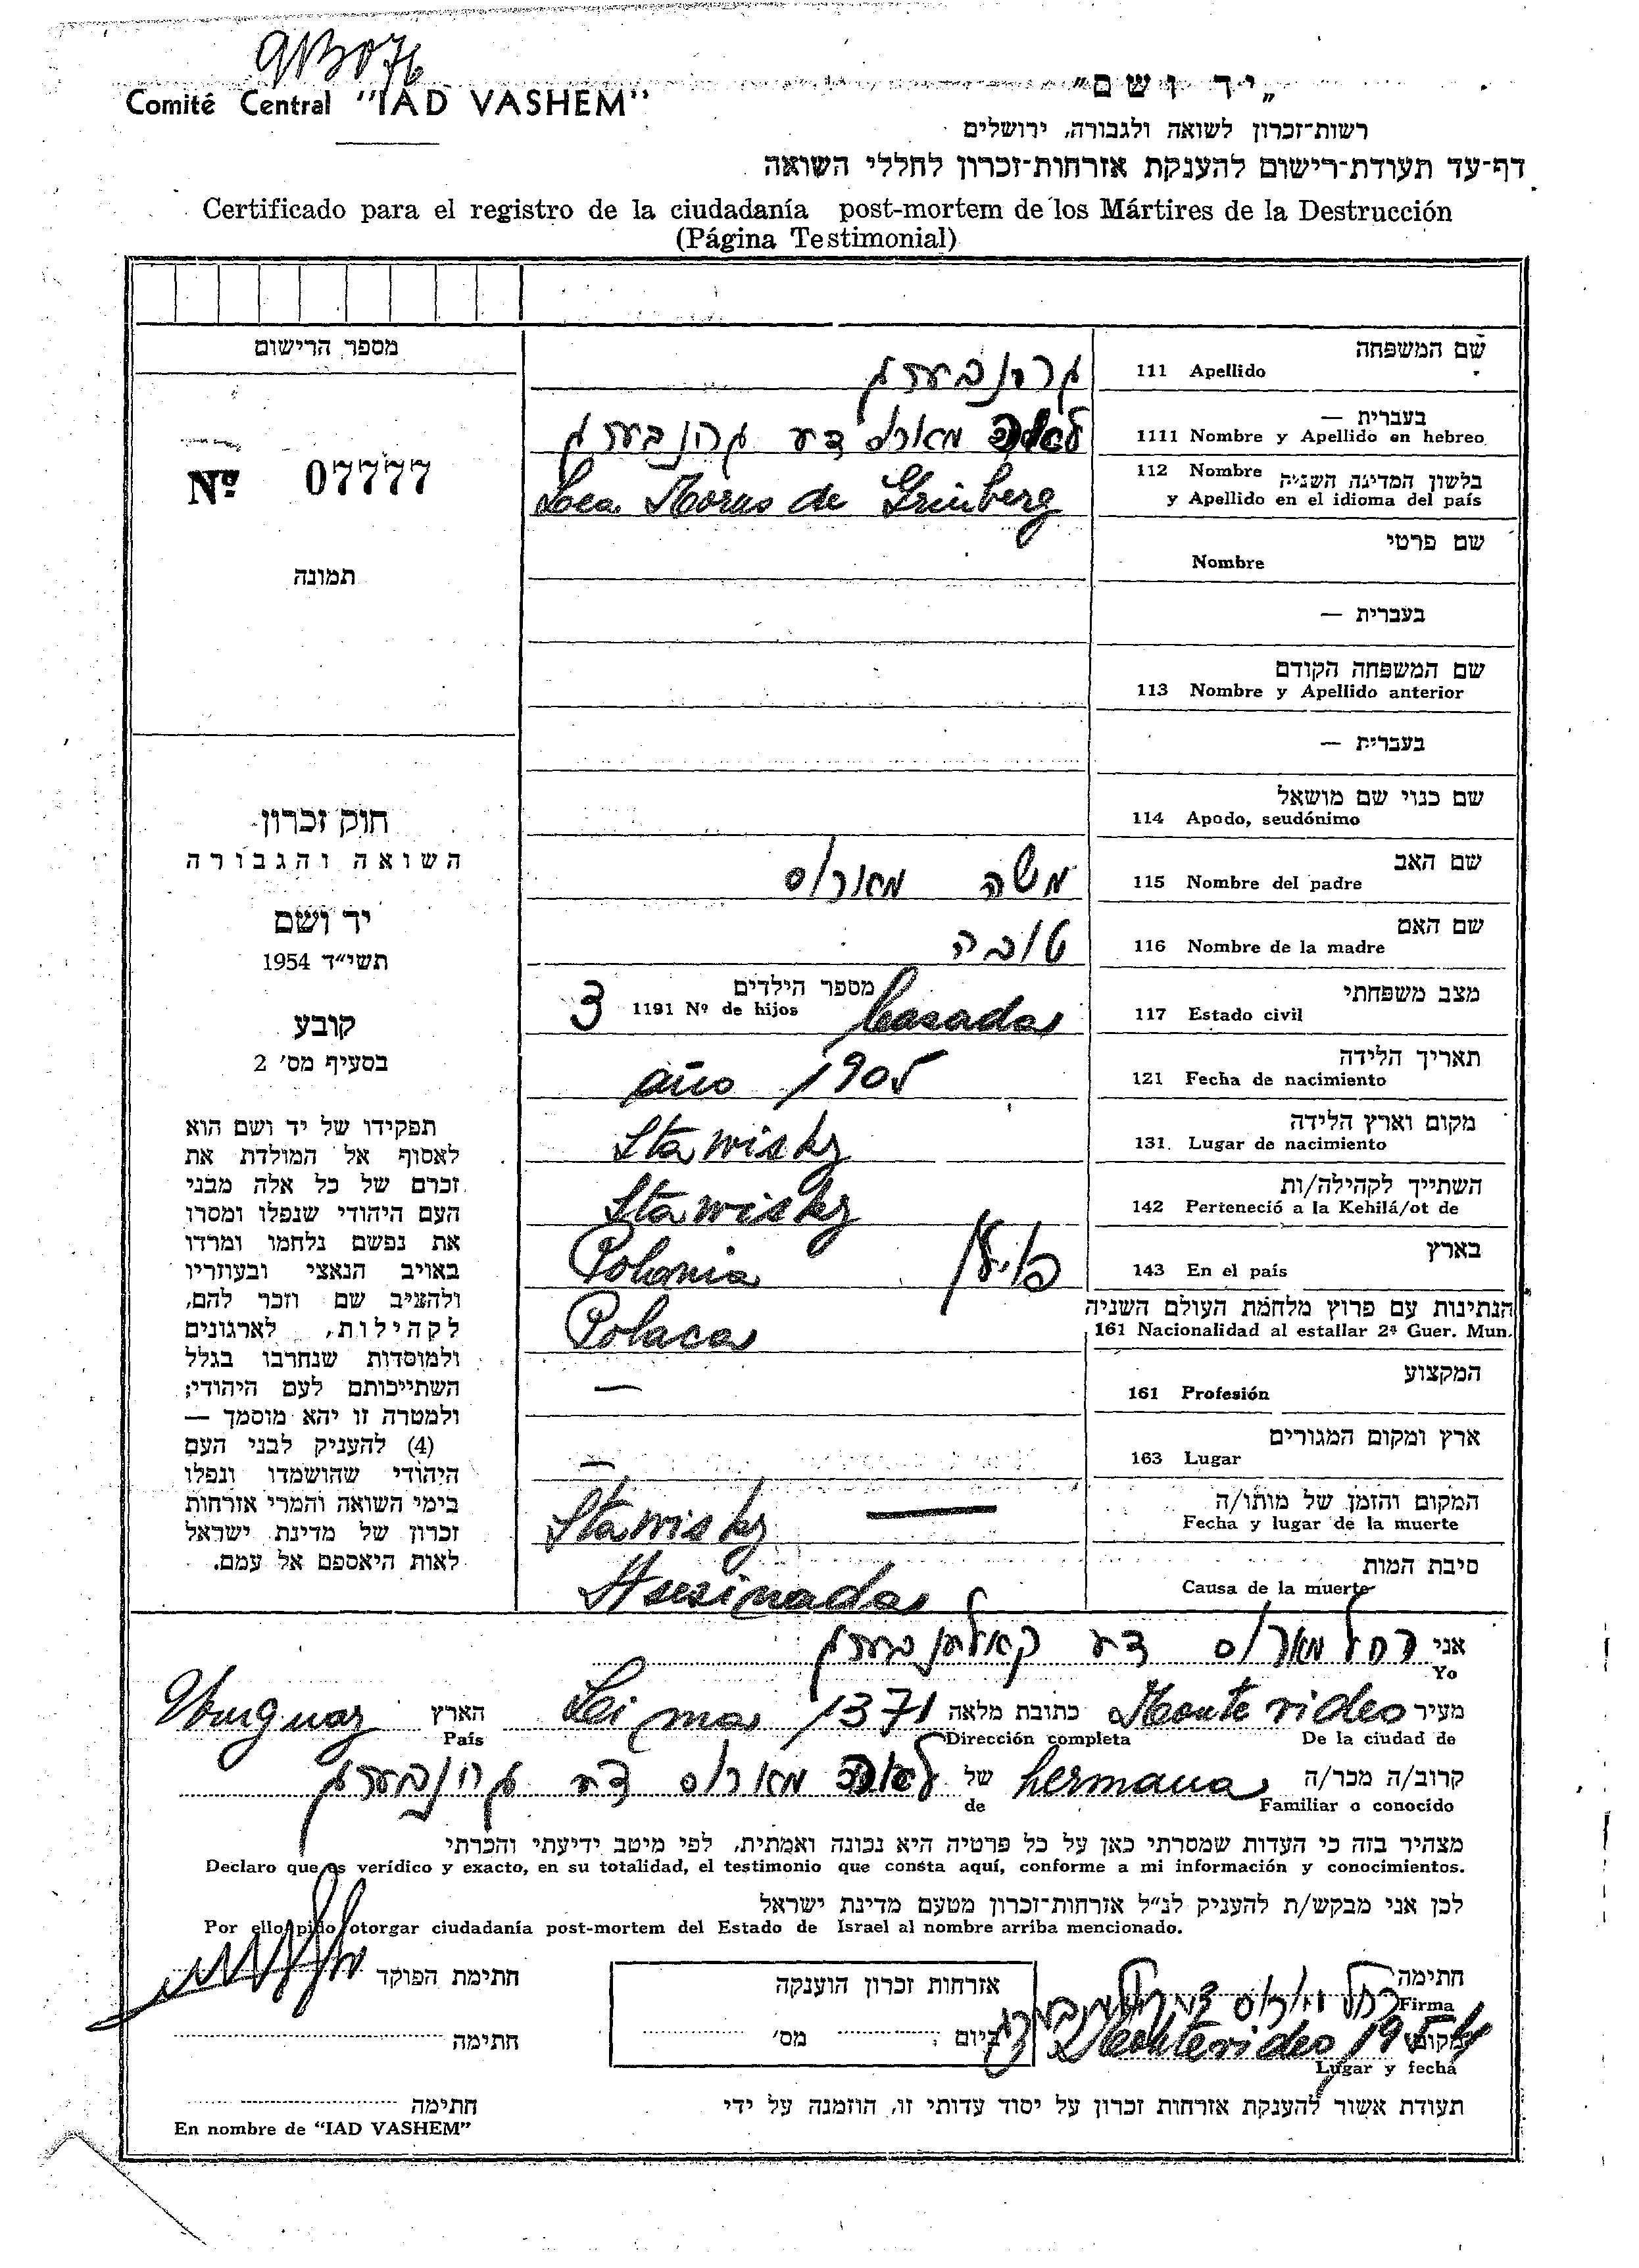 913076
Comité Central "IAD VASHEM"
„יד ושם"
רשות־זכרון לשואה ולגבורה, ירושלים
דף־עד תעודת־רישום להענקת אזרחות־זכרון לחללי השואה
Certificado para el registro de la ciudadanía post-mortem de los Mártires de la Destrucción
(Página Testimonial)
מספר הרישום
Nº 07777
תמונה
חוק זכרון
השואה והגבורה
יד ושם
תשי״ד 1954
קובע
בסעיף מס׳ 2
תפקידו של יד ושם הוא
לאסוף אל המולדת את
זכרם של כל אלה מבני
העם היהודי שנפלו ומסרו
את נפשם נלחמו ומרדו
באויב הנאצי ובעוזריו
ולהציב שם וזכר להם,
לקהילות, לארגונים
ולמוסדות שנחרבו בגלל
השתייכותם לעם היהודי;
ולמטרה זו יהא מוסמך —
(4) להעניק לבני העם
היהודי שהושמדו ונפלו
בימי השואה והמרי אזרחות
זכרון של מדינת ישראל
לאות היאספם אל עמם.
שם המשפחה
111 Apellido
גרונבערג
בעברית —
1111 Nombre y Apellido en hebreo
לאה מאראס דע גרונבערג
112 Nombre בלשון המדינה השניה
y Apellido en el idioma del país
Lea Moras de Grinberg
שם פרטי
Nombre
בעברית —
שם המשפחה הקודם
113 Nombre y Apellido anterior
בעברית —
שם כנוי שם מושאל
114 Apodo, seudónimo
שם האב
115 Nombre del padre
משה מאראס
שם האם
116 Nombre de la madre
טובה
מצב משפחתי
117 Estado civil
Casada
מספר הילדים
1191 Nº de hijos
3
תאריך הלידה
121 Fecha de nacimiento
año 1905
מקום וארץ הלידה
131. Lugar de nacimiento
Stawisky
השתייך לקהילה/ות
142 Perteneció a la Kehilá/ot de
Stawisky
בארץ
143 En el país
Polonia פוילן
הנתינות עם פרוץ מלחמת העולם השניה
161 Nacionalidad al estallar 2ª Guer. Mun.
Polaca
המקצוע
161 Profesión
—
ארץ ומקום המגורים
163 Lugar
—
המקום והזמן של מותו/ה
Fecha y lugar de la muerte
Stawisky —
סיבת המות
Causa de la muerte
Asesinada
אני רחל מאראס דע קאלטנבערג
Yo
מעיר Montevideo כתובת מלאה Lima 1371 הארץ Uruguay
De la ciudad de Dirección completa País
קרוב/ה מכר/ה hermana של לאה מאראס דע גרונבערג
Familiar o conocido de
מצהיר בזה כי העדות שמסרתי כאן על כל פרטיה היא נכונה ואמתית, לפי מיטב ידיעתי והכרתי
Declaro que es verídico y exacto, en su totalidad, el testimonio que consta aquí, conforme a mi información y conocimientos.
לכן אני מבקש/ת להעניק לנ״ל אזרחות־זכרון מטעם מדינת ישראל
Por ello pido otorgar ciudadanía post-mortem del Estado de Israel al nombre arriba mencionado.
חתימה רחל מאראס דע
Firma
מקום Montevideo
Lugar y fecha
אזרחות זכרון הוענקה
ביום מס׳
חתימת הפוקד
חתימה
תעודת אשור להענקת אזרחות זכרון על יסוד עדותי זו, הוזמנה על ידי
חתימה
En nombre de "IAD VASHEM"